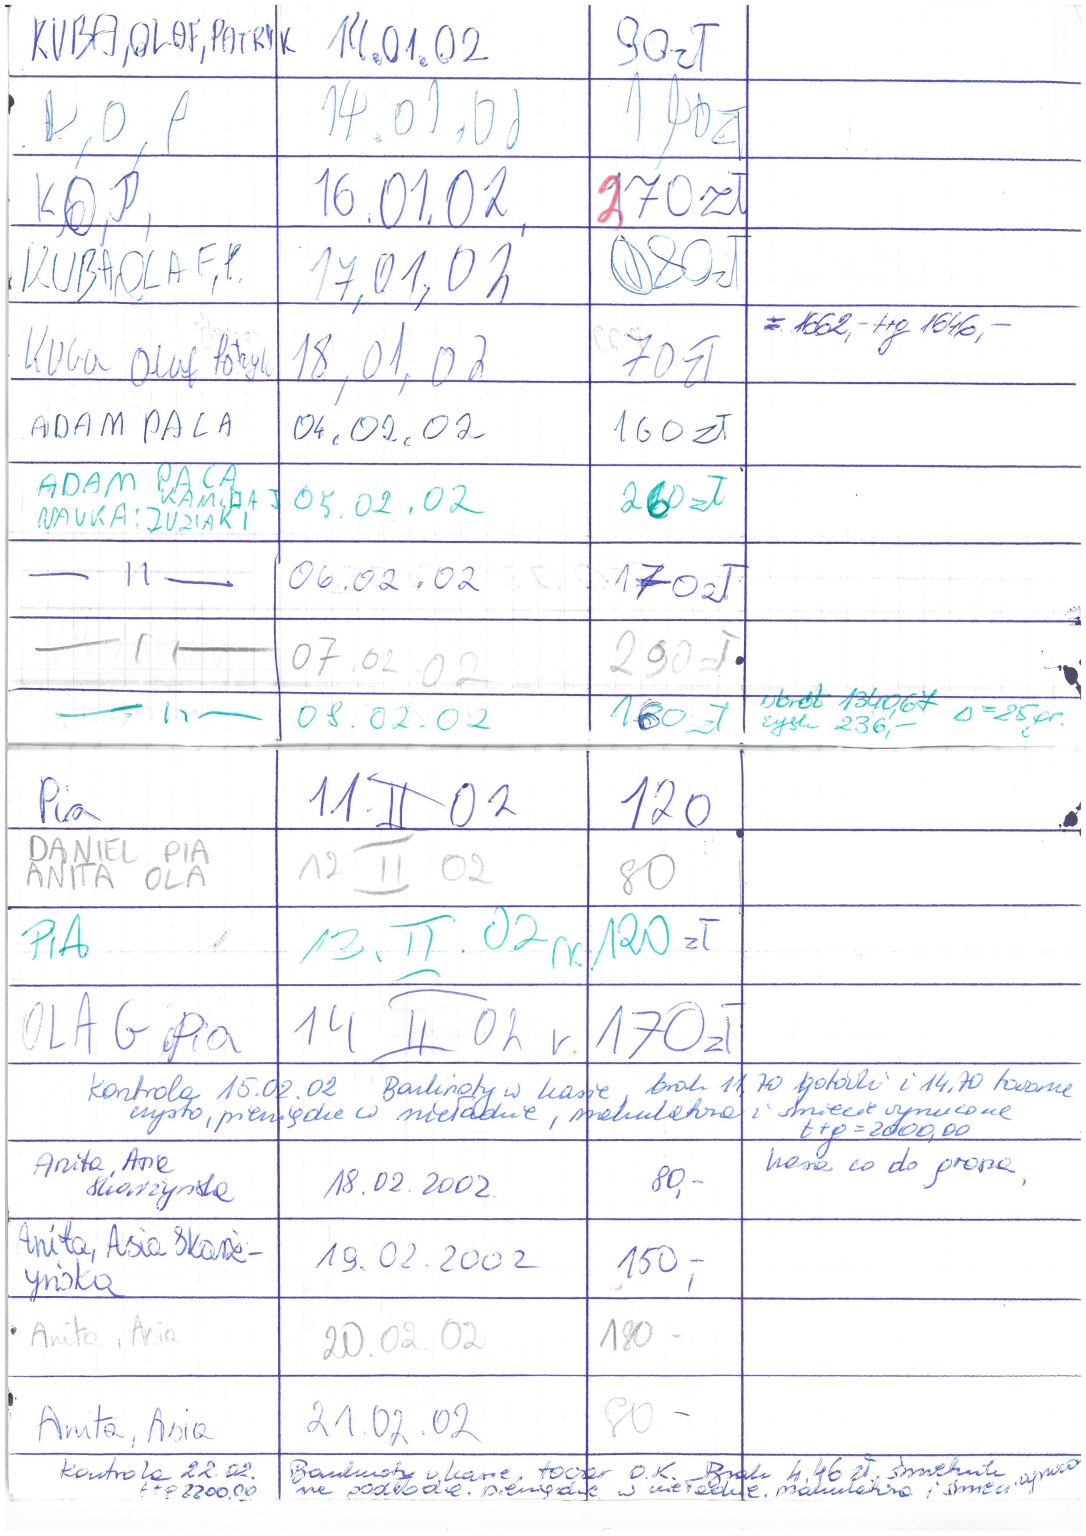 KUBA, OLAF, PATRYK 14.01.02 90zł
K, O, P 14.01.02 140zł
K, O, P, 16.01.02, 270zł
KUBA, OLAF, P. 17,01,02 80zł
= 1662,- t+g 1646,-
Kuba Olaf Patryk 18,01,02 70zł
ADAM PACA 04.02.02 160zł
ADAM PACA
KAMILA J 05.02.02 260zł
NAUKA: ZUZIA K I
— 11 — 06.02.02 170zł
— 11 — 07.02.02 290zł
— 11 — 08.02.02 160zł obrót 1340,67 Δ=25gr.
zysk 236,-
Pia 11 II 02 120
DANIEL PIA
ANITA OLA 12 II 02 80
PIA 13. II. 02 r. 120 zł
OLA G Pia 14 II 02 r. 170zł
Kontrola 15.02.02 Banknoty w kasie, brak 11,70 gotówki i 14,70 towaru
czysto, pieniądze w nieładzie, makulatura i śmiecie wyrzucone
t+g=2000,00
Anita, Asia
Skarżyńska 18.02.2002 80,- kasa co do grosza,
Anita, Asia Skarż-
yńska 19.02.2002 150,-
Anita, Asia 20.02.02 180 -
Anita, Asia 21.02.02 80 -
Kontrola 22.02. Banknoty w kasie, towar O.K. Brak 4,46 zł,
t+g 2200,00 na podłodze. pieniądze w nieładzie. makulatura i śmieci